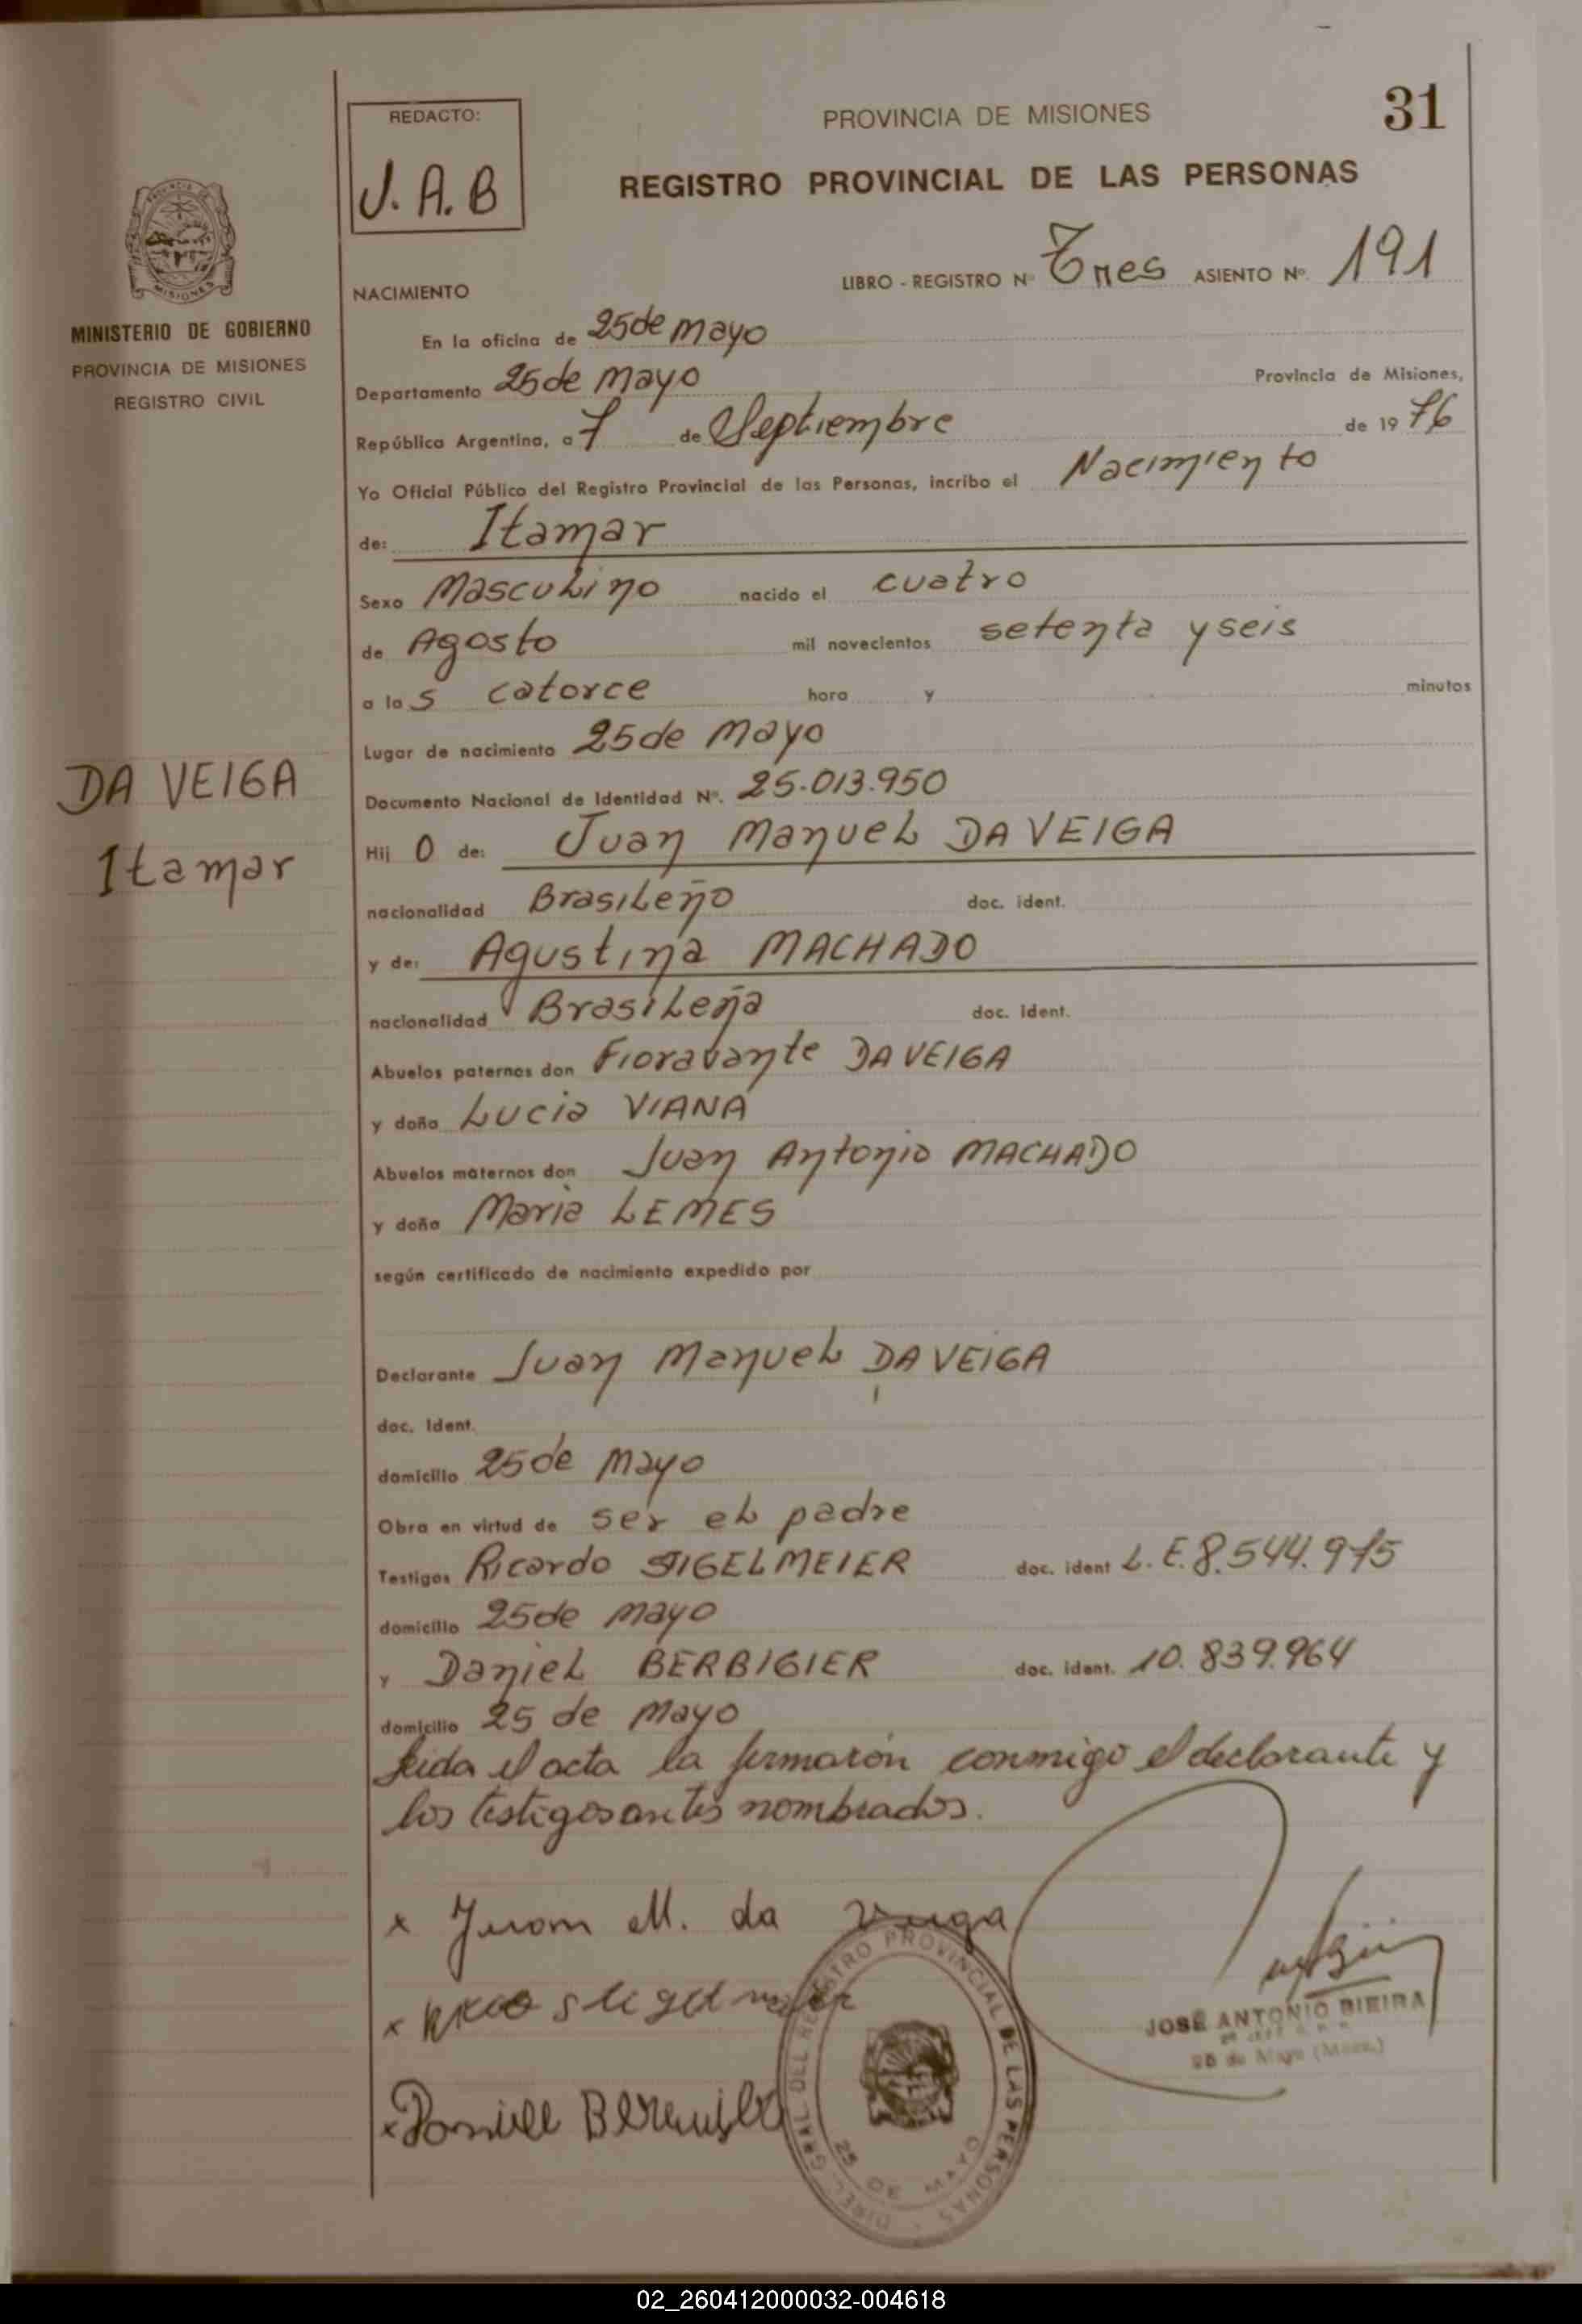 REDACTO:
J. A. B
PROVINCIA DE MISIONES
31
REGISTRO PROVINCIAL DE LAS PERSONAS
LIBRO - REGISTRO Nº Tres ASIENTO Nº. 191
MISIONES
MINISTERIO DE GOBIERNO
PROVINCIA DE MISIONES
REGISTRO CIVIL
NACIMIENTO
En la oficina de 25 de mayo
Departamento 25 de mayo Provincia de Misiones,
República Argentina, a 7 de Septiembre de 19 76
Yo Oficial Público del Registro Provincial de las Personas, incribo el Nacimiento
de: Itamar
Sexo Masculino nacido el cuatro
de Agosto mil novecientos setenta y seis
a las catorce hora y minutos
Lugar de nacimiento 25 de mayo
DA VEIGA
Itamar
Documento Nacional de Identidad Nº. 25.013.950
Hij o de: Juan Manuel DA VEIGA
nacionalidad Brasileño doc. ident.
y de: Agustina MACHADO
nacionalidad Brasileña doc. ident.
Abuelos paternos don Fioravante DA VEIGA
y doña Lucia VIANA
Abuelos maternos don Juan Antonio MACHADO
y doña Maria LEMES
según certificado de nacimiento expedido por
Declarante Juan Manuel DA VEIGA
doc. Ident.
domicilio 25 de mayo
Obra en virtud de ser el padre
Testigos Ricardo SIGELMEIER doc. ident L. E. 8.544.975
domicilio 25 de mayo
y Daniel BERBIGIER doc. ident. 10.839.964
domicilio 25 de mayo
Leida el acta la firmaron conmigo el declarante y
los testigos antes nombrados.
x Juom M. da Veiga
x
x
DIREC. GRAL. DEL REGISTRO PROVINCIAL DE LAS PERSONAS
25 DE MAYO
JOSÉ ANTONIO BIEIRA
25 de Mayo (Mnes.)
02_260412000032-004618